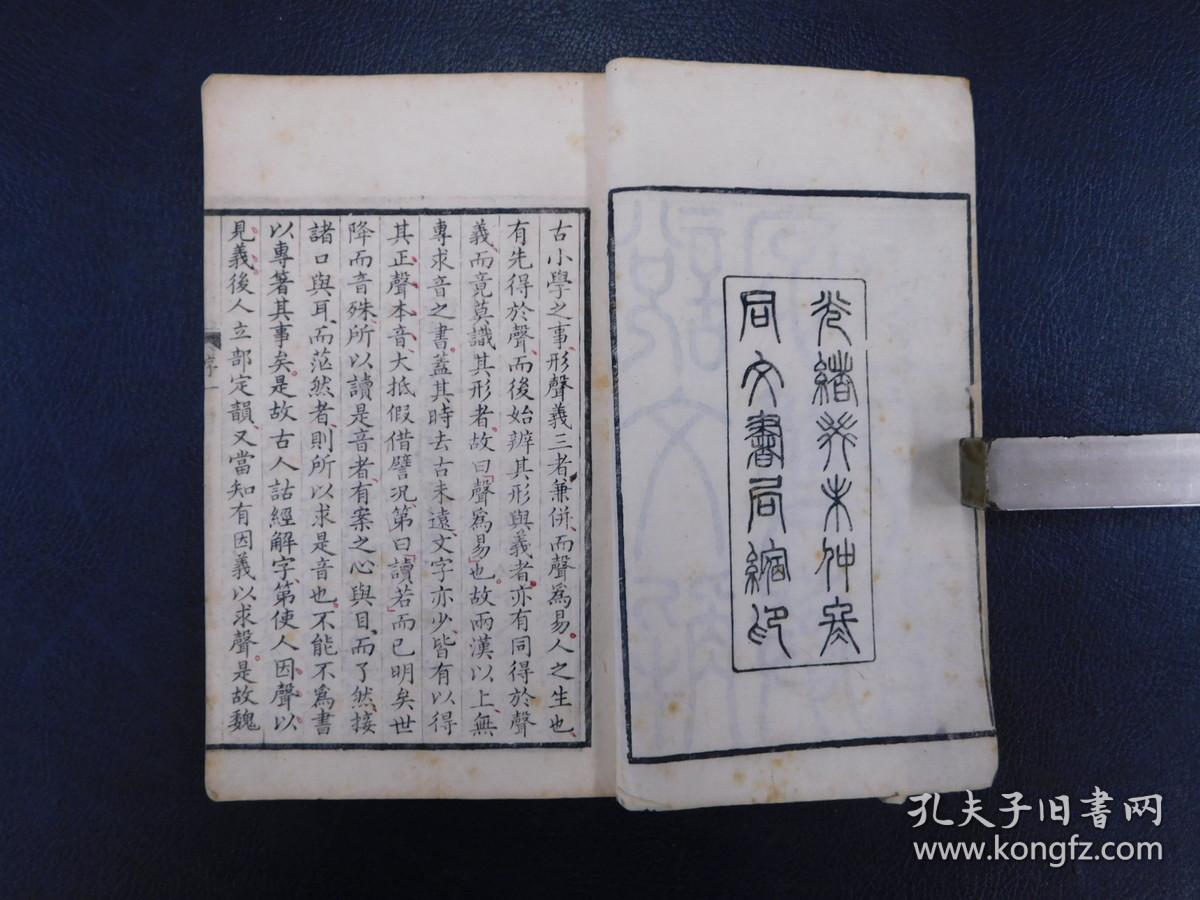 光緒癸未仲冬
同文書局縮印
古小學之事、形聲義三者兼併、而聲爲易。人之生也、
有先得於聲、而後始辨其形與義者、亦有同得於聲
義、而竟莫識其形者、故曰「聲爲易」也。故兩漢以上、無
專求音之書。蓋其時去古未遠、文字亦少、皆有以得
其正聲本音、大抵假借譬況、第曰「讀若」而已明矣。世
降而音殊、所以讀是音者、有案之心與目、而了然、接
諸口與耳、而茫然者、則所以求是音也、不能不爲書
以專著其事矣。是故古人詁經解字、第使人因聲以
見義。後人立部定韻、又當知有因義以求聲。是故魏
序 一
孔夫子旧书网
www.kongfz.com